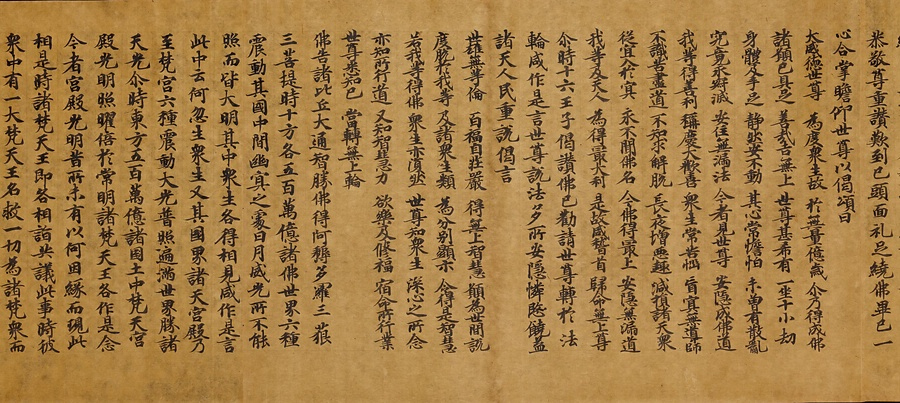 恭敬尊重讃歎到已頭面礼足繞佛畢已一
心合掌瞻仰世尊以偈頌曰
大威德世尊 為度衆生故 於無量億歲 尒乃得成佛
諸願已具足 善哉吉無上 世尊甚希有 一坐十小劫
身體及手足 静然安不動 其心常憺怕 未曽有散亂
究竟永寂滅 安住無漏法 今者見世尊 安隱成佛道
我等得善利 稱慶大歡喜 衆生常苦惱 盲冥無導師
不識苦盡道 不知求解脫 長夜增惡趣 減損諸天衆
從冥入於冥 永不聞佛名 今佛得最上 安隱無漏道
我等及天人 為得最大利 是故咸稽首 歸命無上尊
尒時十六王子偈讃佛已勸請世尊轉於法
輪咸作是言世尊說法多所安隱憐愍饒益
諸天人民重說偈言
世雄無等倫 百福自莊嚴 得無上智慧 願為世間說
度脫於我等 及諸衆生類 為分別顯示 令得是智慧
若我等得佛 衆生亦復然 世尊知衆生 深心之所念
亦知所行道 又知智慧力 欲樂及修福 宿命所行業
世尊悉知已 當轉無上輪
佛告諸比丘大通智勝佛得阿耨多羅三藐
三菩提時十方各五百萬億諸佛世界六種
震動其國中間幽冥之處日月威光所不能
照而皆大明其中衆生各得相見咸作是言
此中云何忽生衆生又其國界諸天宮殿乃
至梵宮六種震動大光普照遍滿世界勝諸
天光尒時東方五百萬億諸國土中梵天宮
殿光明照曜倍於常明諸梵天王各作是念
今者宮殿光明昔所未有以何因緣而現此
相是時諸梵天王即各相詣共議此事時彼
衆中有一大梵天王名救一切為諸梵衆而